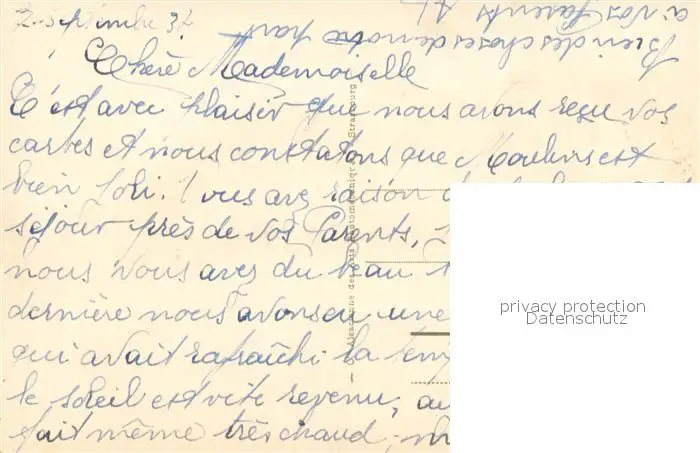 2 septembre 37
Bien des choses de notre part
à vos Parents
Chère Mademoiselle
C'est avec plaisir que nous avons reçu vos
cartes et nous constatons que Moulins est
bien joli. Vous avez raison
séjour près de vos Parents,
nous vous avez du beau
dernière nous avons eu une
qui avait rafraîchi la
le soleil est vite revenu,
fait même très chaud,
Alsacienne des Arts Photomécaniques, Strasbourg
privacy protection
Datenschutz